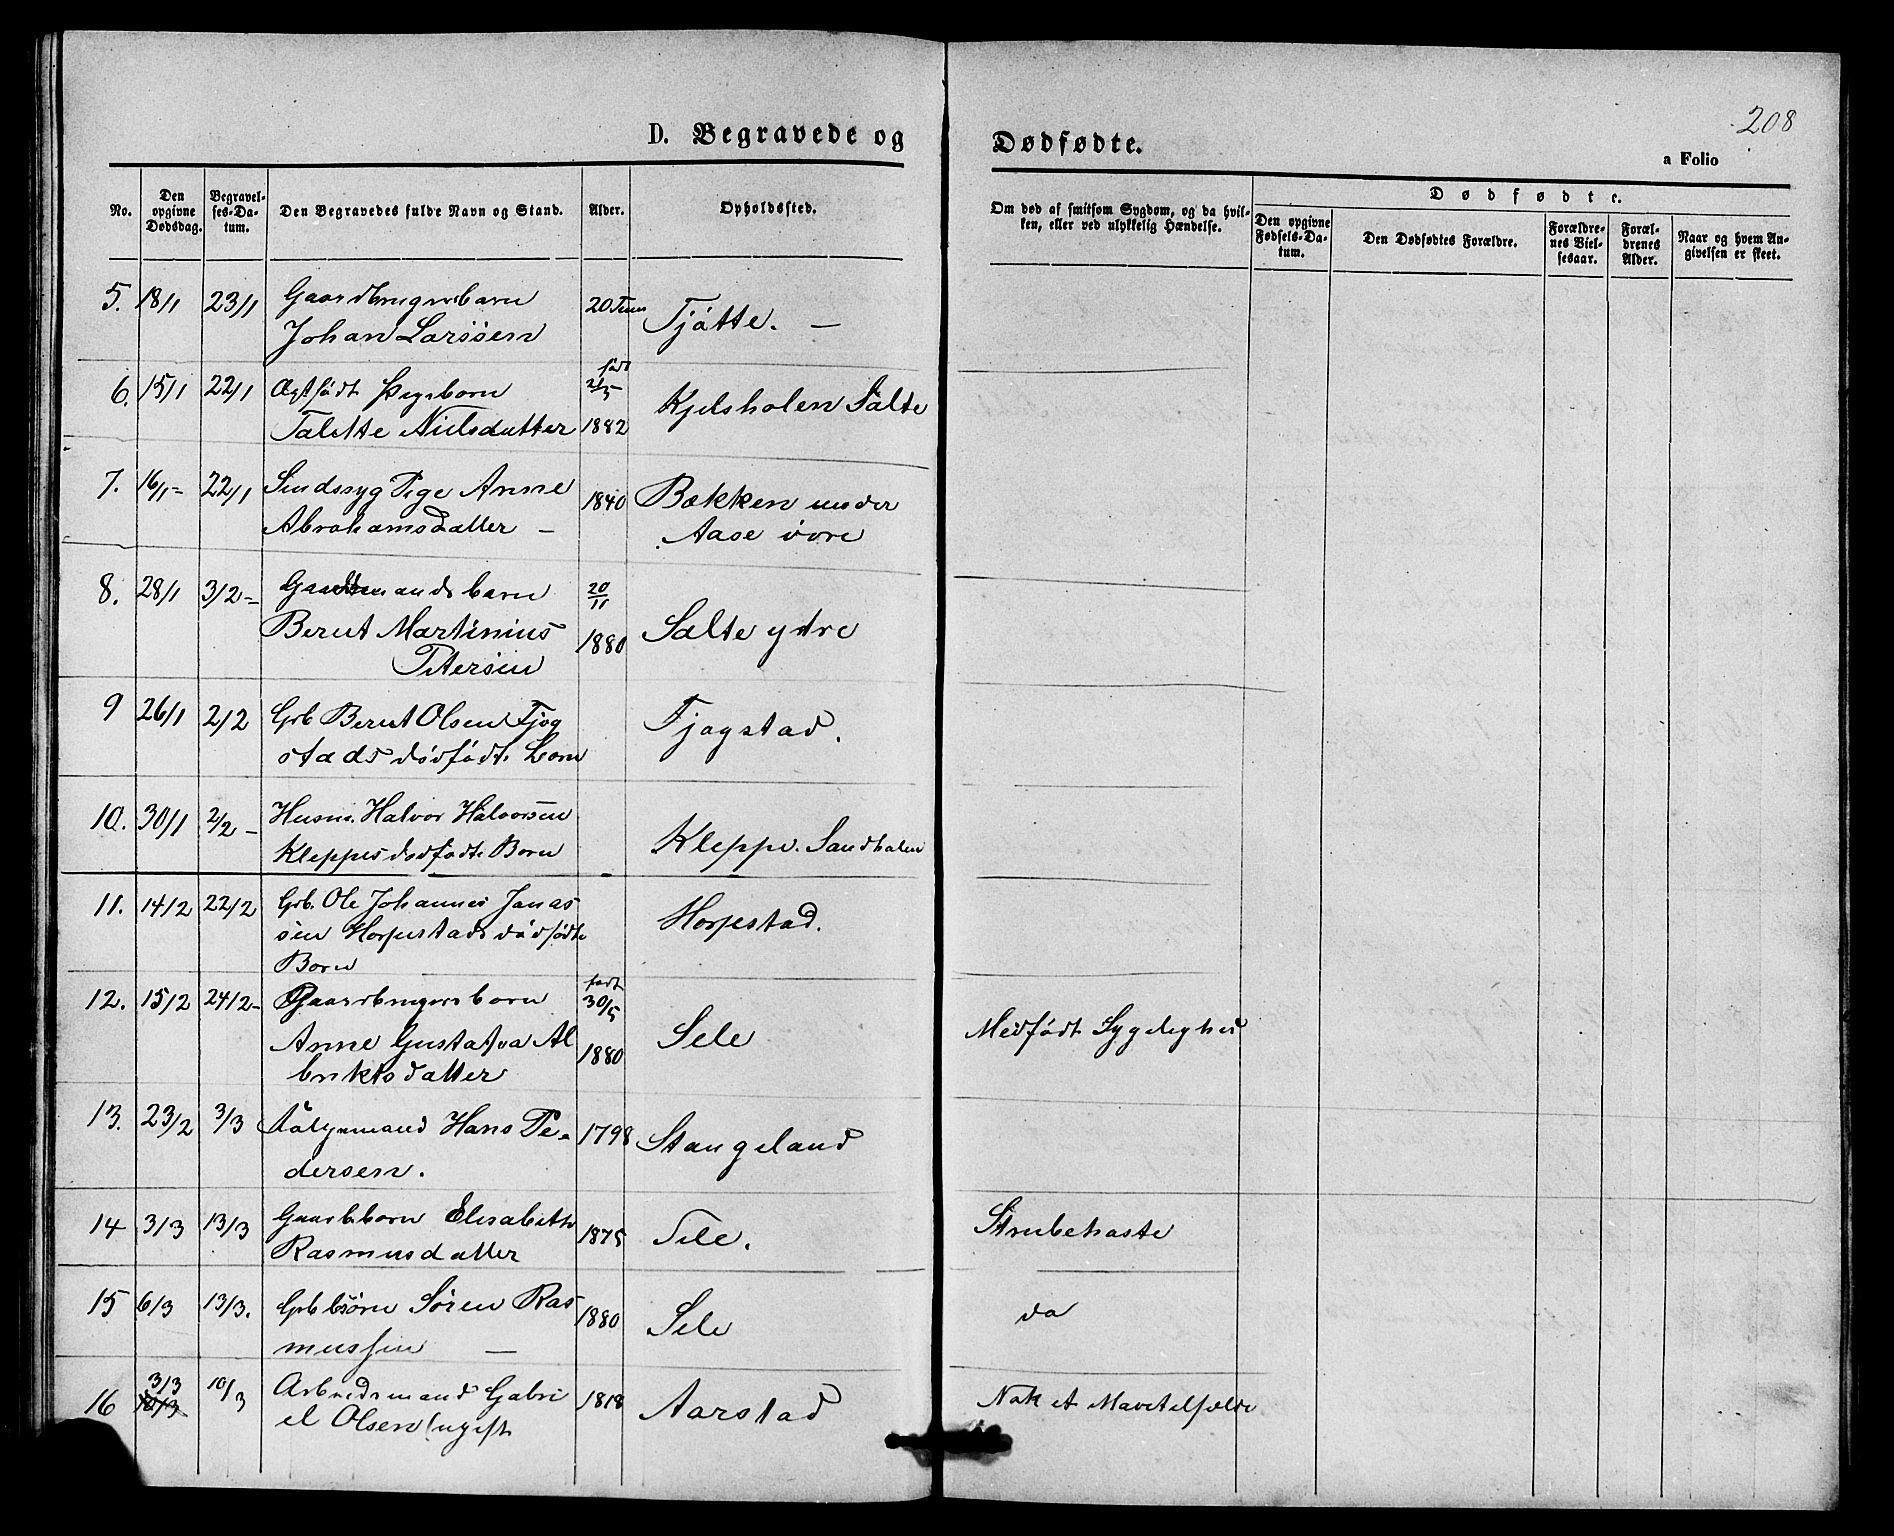 208
D. Begravede og Dødfødte.
a Folio
No.
Den opgivne Dødsdag.
Begravelses-Datum.
Den Begravedes fulde Navn og Stand.
Alder.
Opholdssted.
Om død af smitsom Sygdom, og da hvilken, eller ved ulykkelig Hændelse.
Dødfødte.
Den opgivne Fødsels-Datum.
Den Dødfødtes Forældre.
Forældrenes Vielsesaar.
Forældrenes Alder.
Naar og hvem Angivelsen er skeet.
5. 18/1 23/1 Gaardbrugerbarn 20 Timer Tjøtte. —
Johan Larssen
6. 15/1 22/1 Ægtefødt Pigebarn født 21/5 Kjelsholen Salte
Talette Nielsdatter 1882
7. 16/1 - 22/1 Sindssyg Pige Anne 1840 Bækken under
Abrahamsdatter — Aase øvre
8. 28/1 3/2 - Gaardmandsbarn 20/11 Salte ydre
Berut Martinius 1880
Petersen
9 26/1 2/2 Grb Berut Olsen Tjog Tjogstad.
stads dødfødte barn
10. 30/1 2/2 - Husm. Halvor Halvorsen Kleppe. Sandbalen
Kleppes dødfødte Barn
11. 14/2 22/2 Grb. Ole Johannes Jonas Horpestad.
sen Horpestads dødfødte
Barn
12. 15/2 24/2 - Gaardbrugers barn født 30/5 Sele Medfødt Sygelighed
Anne Gustafva Al 1880
briktsdatter
13. 23/2 3/3 Hans Pe- 1798 Stangeland
dersen.
14 3/3 13/3 Gaardbbarn Elisabeth 1875 Sele. Strubehoste
Rasmusdatter
15 6/3 13/3. Grb barn Søren Ras 1880 Sele do
mussen —
16 3/3 10/3 10/3 Arbeidsmand Gabri 1818 Aarstad Nok et Mavetilfælde
el Olsen (ugift